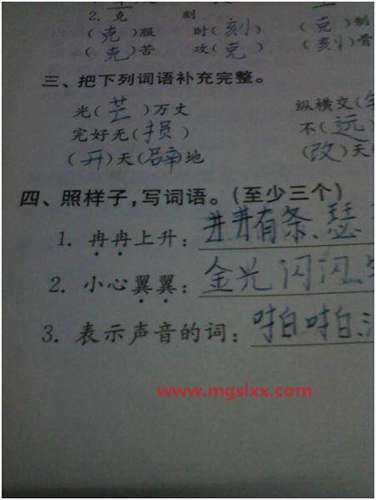 2. 克 刻
(克)服 时(刻) (克)制
(克)苦 攻(克) (刻)骨
三、把下列词语补充完整。
光(芒)万丈 纵横交(
完好无(损) 不(远
(开)天(辟)地 (改)天
四、照样子,写词语。(至少三个)
1. 冉冉上升: 井井有条、瑟
2. 小心翼翼: 金光闪闪、
3. 表示声音的词: 啪啪、
www.mgslxx.com